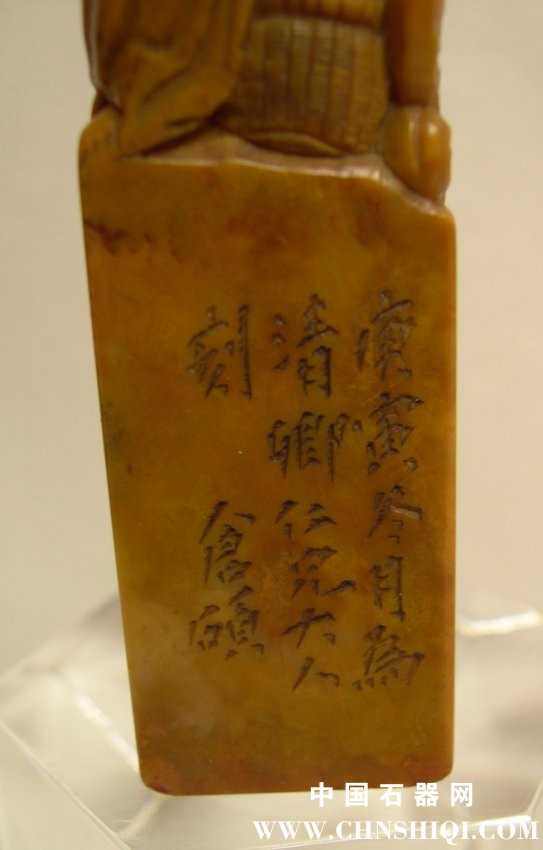 庚寅冬月為
清卿仁兄大人
刻 倉碩
中国石器网
WWW.CHNSHIQI.COM